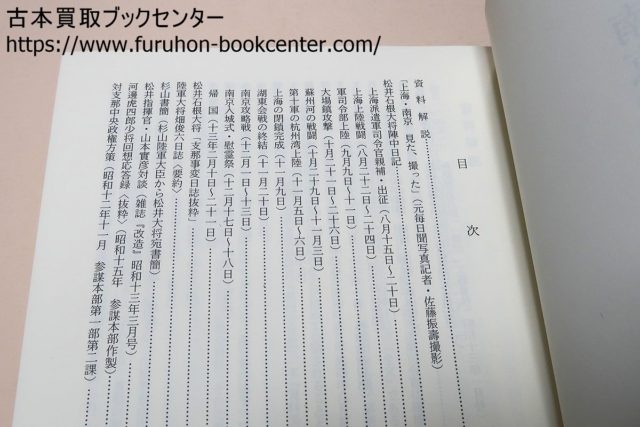 古本買取ブックセンター
https://www.furuhon-bookcenter.com/
目次
資料解説
「上海・南京 見た、撮った」（元毎日聞写真記者・佐藤振壽撮影）
松井石根大将陣中日記
上海派遣軍司令官親補・出征（八月十五日～二十日）
上海上陸戦闘（八月二十一日～二十四日）
軍司令部上陸（九月九日～十一日）
大場鎮攻撃（十月二十一日～二十六日）
蘇州河の戦闘（十月二十九日～十一月三日）
第十軍の杭州湾上陸（十一月五日～六日）
上海の閉鎖完成（十一月九日）
湖東会戦の終結（十一月二十日）
南京攻略戦（十二月一日～十三日）
南京入城式・慰霊祭（十二月十七日～十八日）
帰国（十三年二月十日～二十一日）
松井石根大将「支那事変日誌抜粋」
陸軍大将畑俊六日誌〈要約〉
杉山書簡（杉山陸軍大臣から松井大将宛書簡）
松井指揮官・山本實彦対談（雑誌『改造』昭和十三年三月号）
河邊虎四郎少将回想応答録〈抜粋〉（昭和十五年 参謀本部作製）
対支那中央政権方策（昭和十二年十一月 参謀本部第一部第二課）